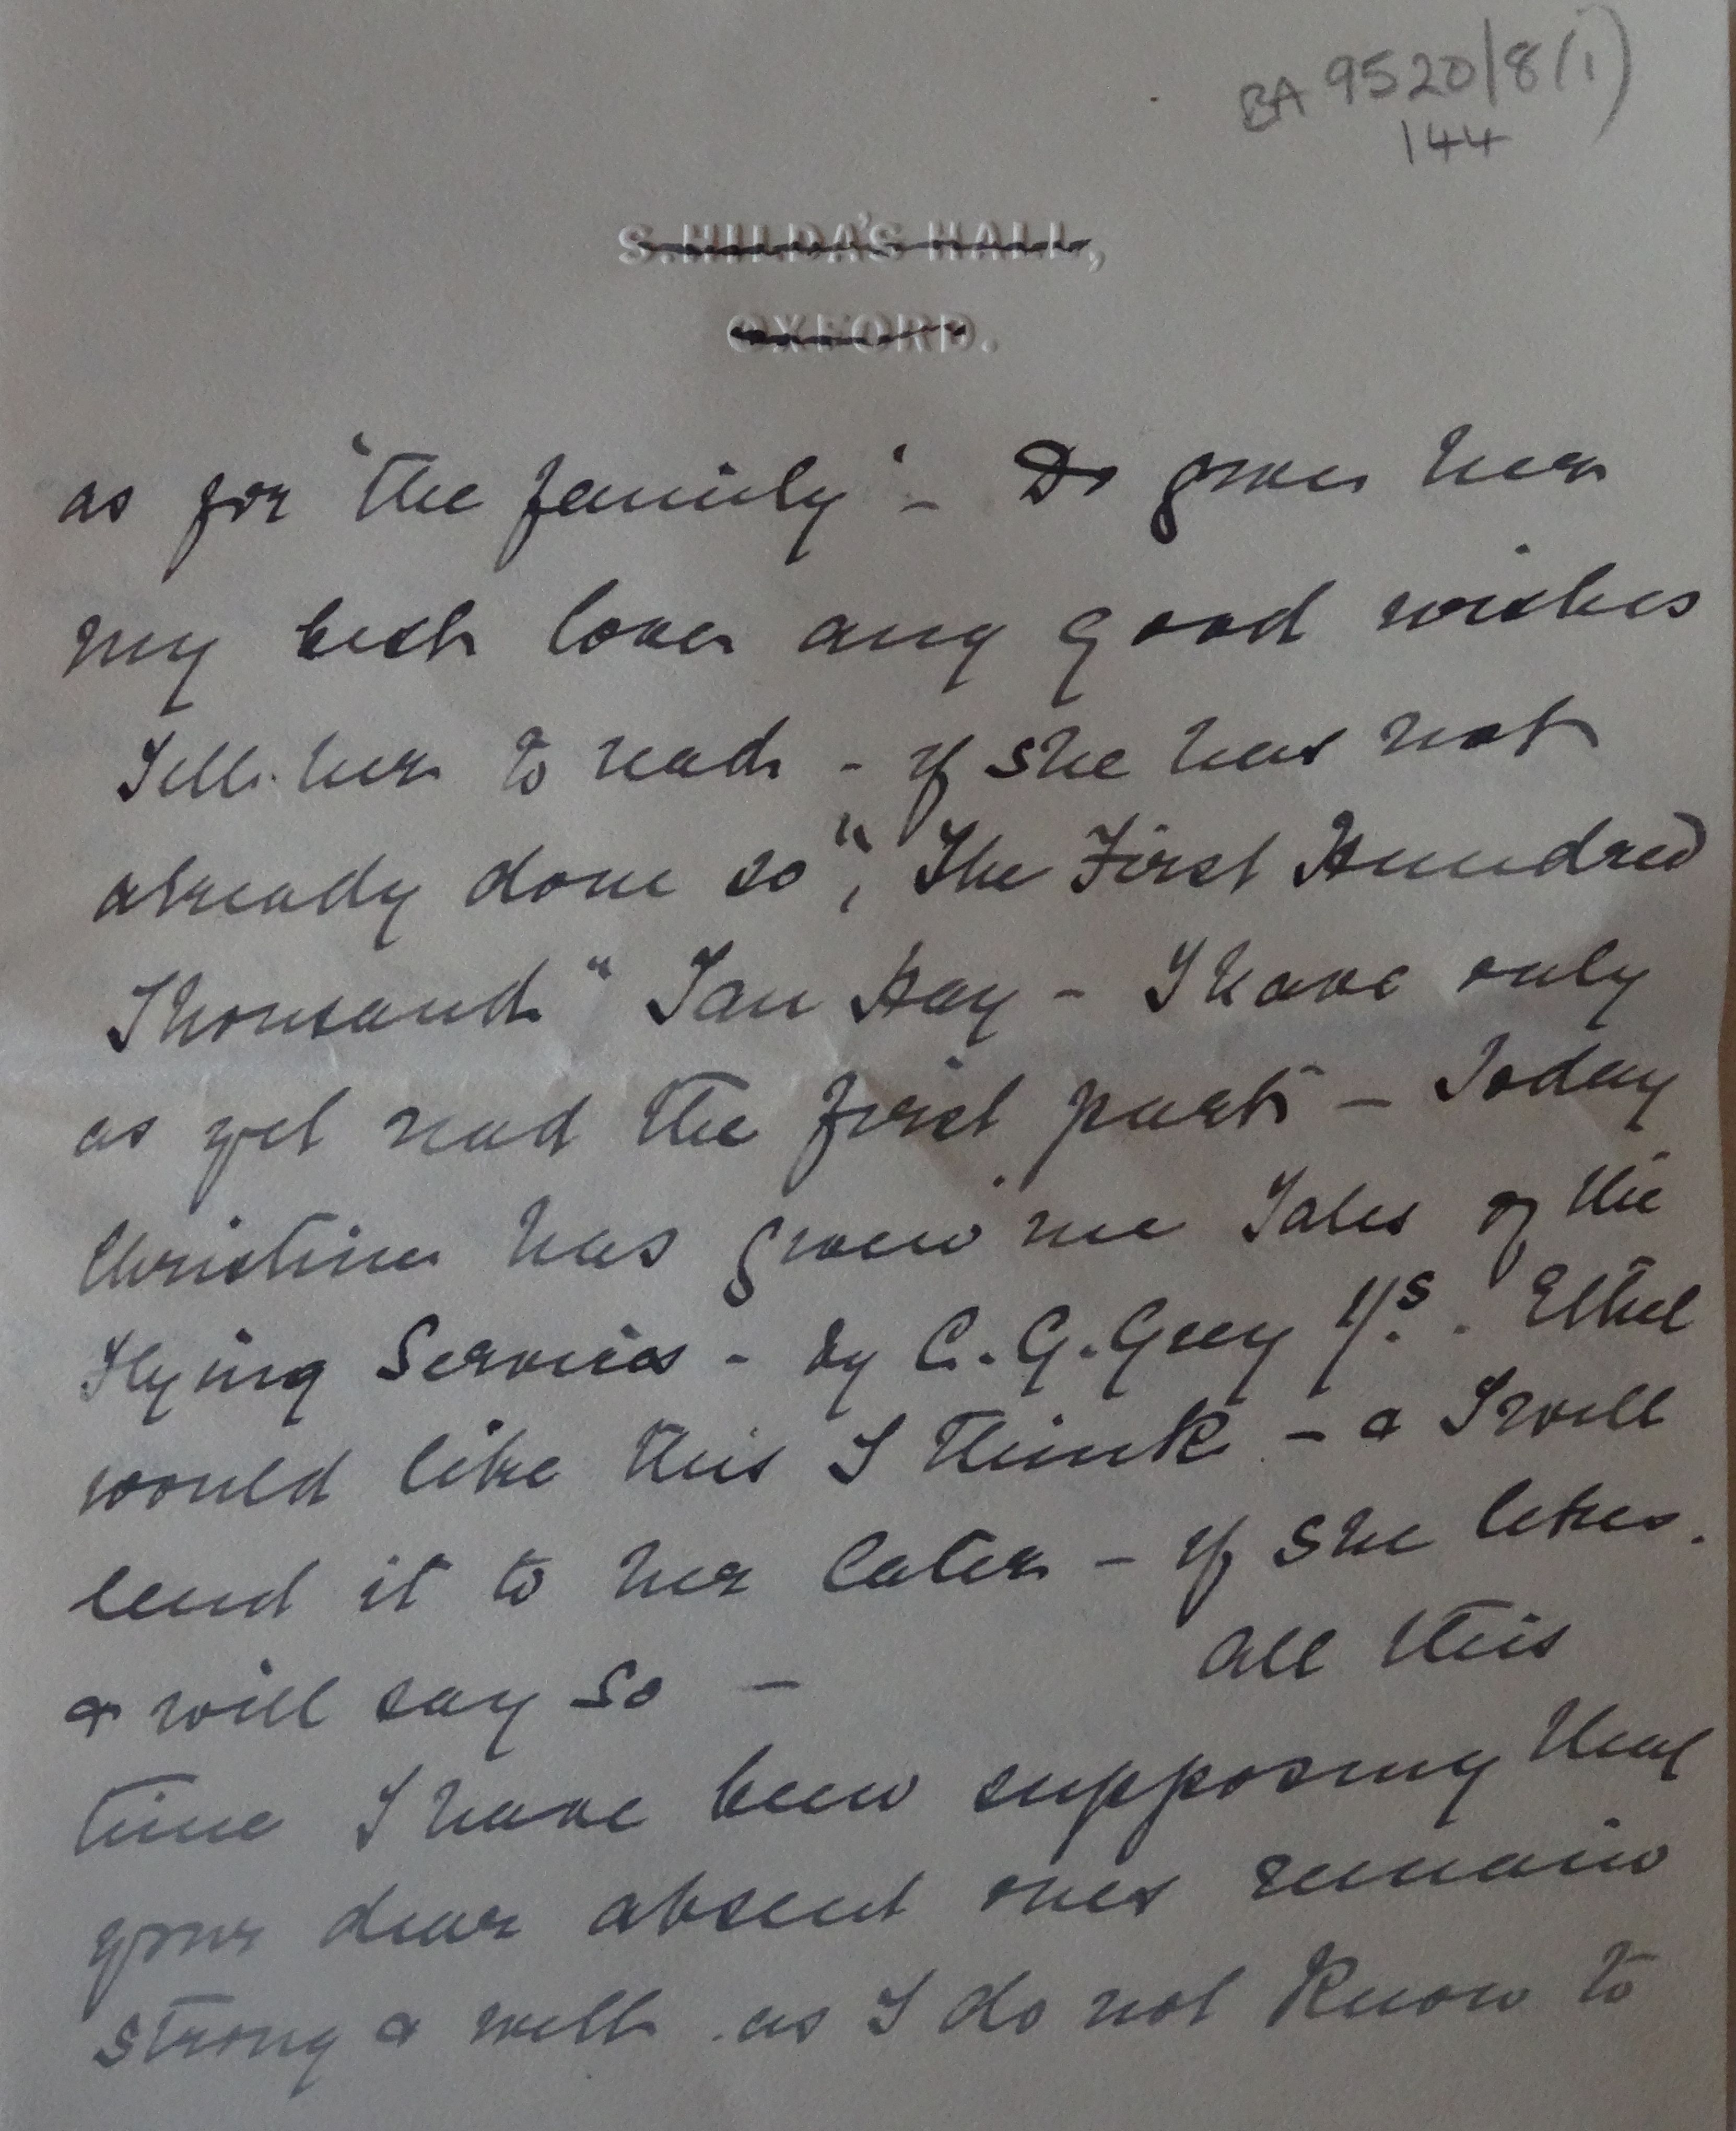 BA 9520/8(i)
144
S. HILDA'S HALL,
OXFORD.
as for 'the family' - Do give her
my best love any good wishes
Tell her to read - if she has not
already done so", "The First Hundred
Thousand" Ian Hay - I have only
as yet read the first part - Today
Christine has given me Tales of the
Flying Services - by C. G. Grey 1/s. Ethel
would like this I think - & I will
lend it to her later - if she likes.
& will say so - All this
time I have been supposing that
your dear absent ones remain
strong & well as I do not know to